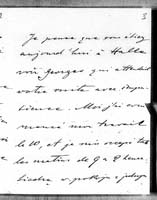 3
Je pense que vous étiez
aujourd'hui à Halle
voir Georges qui attendait
votre visite avec impa-
tience. Moi j'ai com
mencé mon travail
le 10, et je suis occupé tous
les matins de 9 a 2 heures,